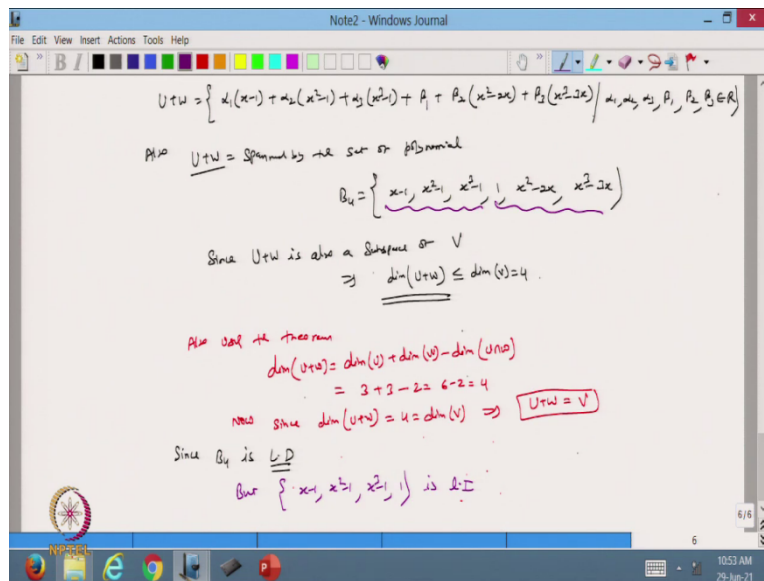 Note2 - Windows Journal
File Edit View Insert Actions Tools Help
U+W = { α₁(x-1) + α₂(x²-1) + α₃(x³-1) + β₁ + β₂(x²-2x) + β₃(x³-3x) / α₁, α₂, α₃, β₁, β₂, β₃ ∈ R}
Also U+W = Spanned by the set of polynomial
B₄ = { x-1, x²-1, x³-1, 1, x²-2x, x³-3x }
Since U+W is also a Subspace of V
⇒ dim(U+W) ≤ dim(V)=4 .
Also using the theorem
dim(U+W) = dim(U) + dim(W) - dim(U∩W)
= 3+3-2 = 6-2 = 4
Now since dim(U+W) = 4 = dim(V) ⇒ U+W = V
Since B₄ is L.D
But { x-1, x²-1, x³-1, 1} is L.I
NPTEL
6/6
6
10:53 AM
29-Jun-21